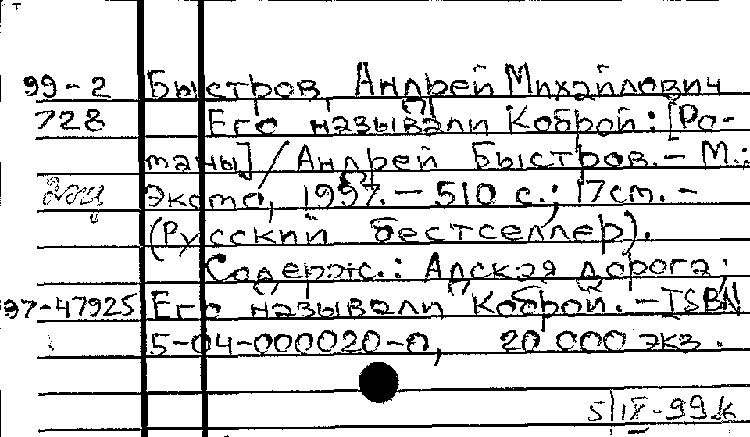 99-2 Быстров, Андрей Михайлович
728 Его называли Коброй: [Ро-
маны] / Андрей Быстров. - М.:
2экз Эксмо, 1997. - 510 с.; 17см. -
(Русский бестселлер).
Содерж.: Адская дорога;
97-47925 Его называли Коброй. - ISBN
5-04-000020-0, 20 000 экз.
5/IX-99